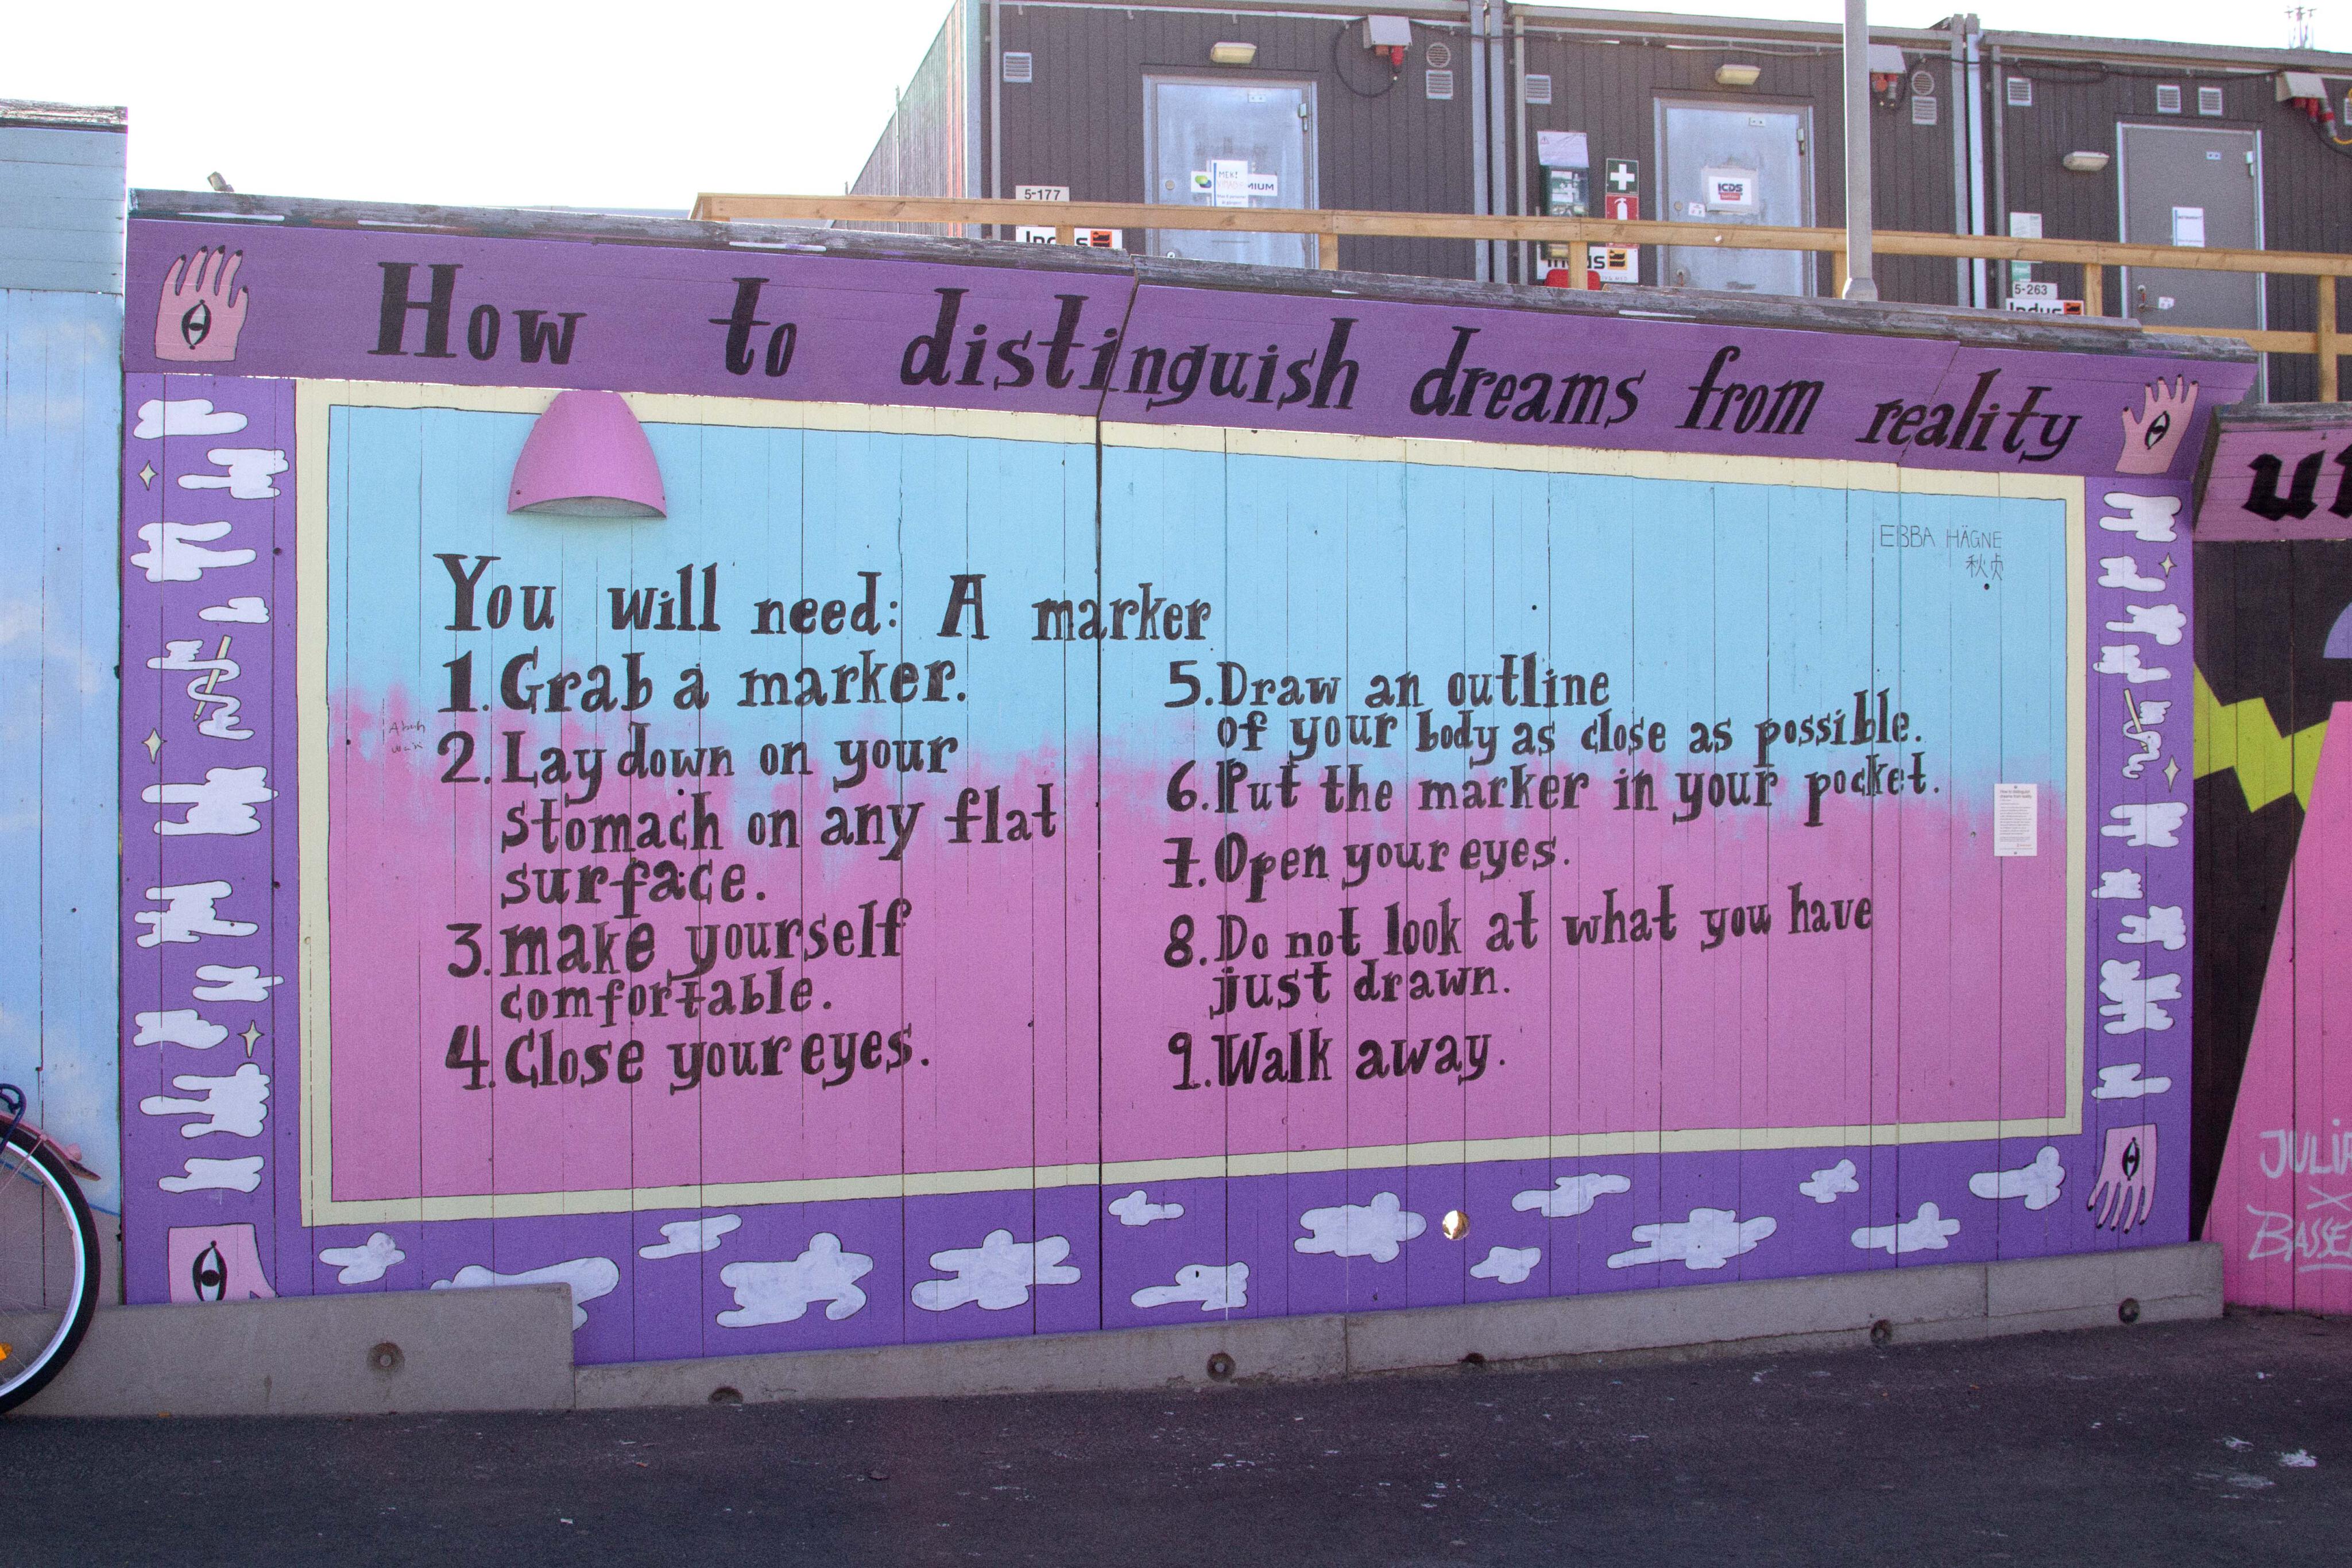 5-177
Indus
MEKI
MIUM
ICDS
Indus
5-263
Indus
How to distinguish dreams from reality
EBBA HÄGNE
You will need: A marker
1. Grab a marker.
2. Lay down on your
stomach on any flat
surface.
3. make yourself
comfortable.
4. Close your eyes.
5. Draw an outline
of your body as close as possible.
6. Put the marker in your pocket.
7. Open your eyes.
8. Do not look at what you have
just drawn.
9. Walk away.
JULIA
X
BASSE